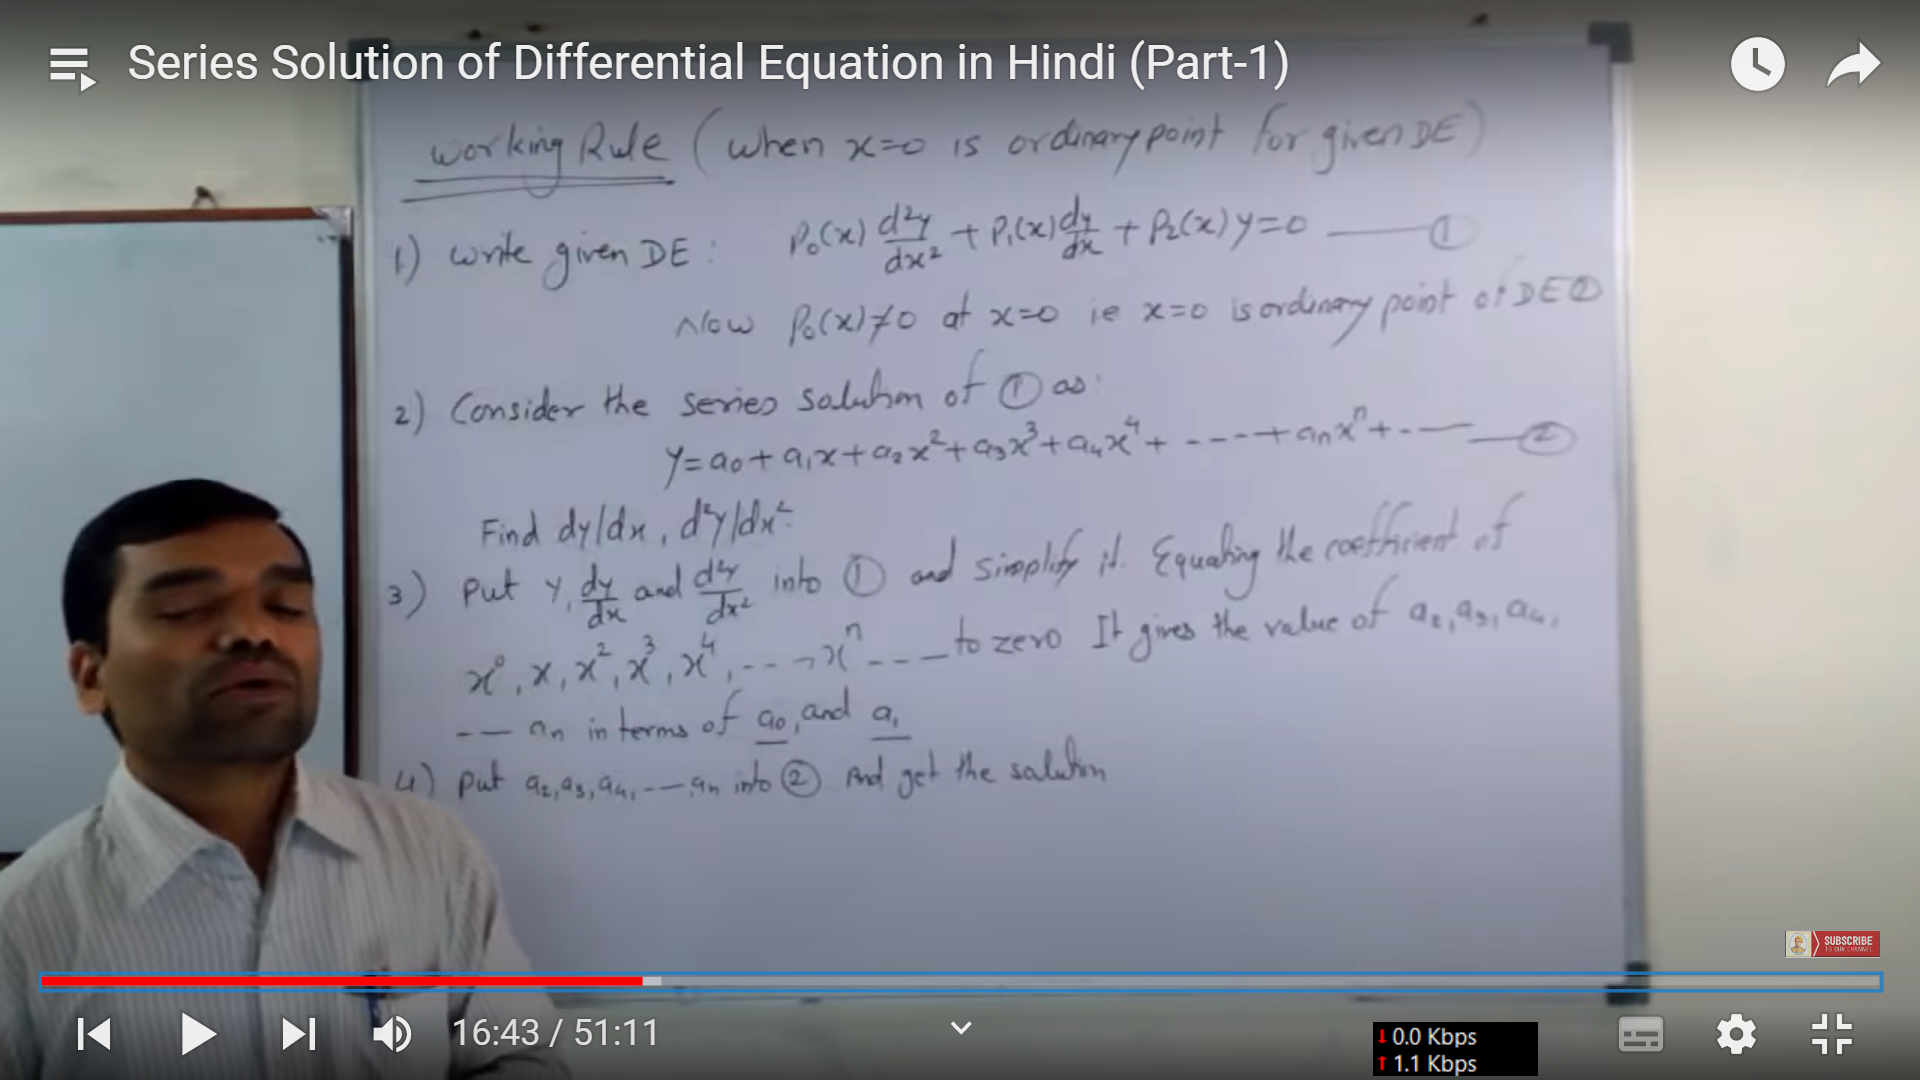 Series Solution of Differential Equation in Hindi (Part-1)
Working Rule (when x=0 is ordinary point for given DE)
1) write given DE : P₀(x) d²y/dx² + P₁(x) dy/dx + P₂(x) y=0 —— ①
Now P₀(x)≠0 at x=0 ie x=0 is ordinary point of DE ①
2) Consider the series solution of ① as:
y=a₀+a₁x+a₂x²+a₃x³+a₄x⁴+ ----+aₙxⁿ+---- —②
Find dy/dx, d²y/dx².
3) Put y, dy/dx and d²y/dx² into ① and simplify it. Equating the coefficient of
x⁰, x, x², x³, x⁴, ---, xⁿ --- to zero It gives the value of a₂, a₃, a₄,
-- aₙ in terms of a₀, and a₁
4) Put a₂, a₃, a₄, --- aₙ into ② And get the solution
SUBSCRIBE
TO OUR CHANNEL
16:43 / 51:11
0.0 Kbps
1.1 Kbps